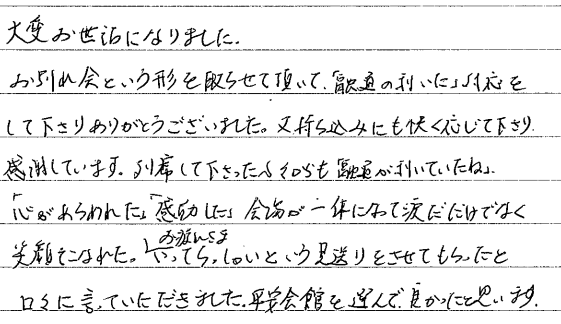 大変お世話になりました。
お別れ会という形を取らせて頂いて、「融通の利いた」対応を
して下さりありがとうございました。又持ち込みにも快く応じて下さり
感謝しています。列席して下さった人々からも「融通が利いていたね」
「心があらわれた」「感動した」会場が一体になって涙だけでなく
お疲れさま
笑顔でいってらっしゃいという見送りをさせてもらったと
口々に言っていただきました。平安会館を選んで良かったと思います。